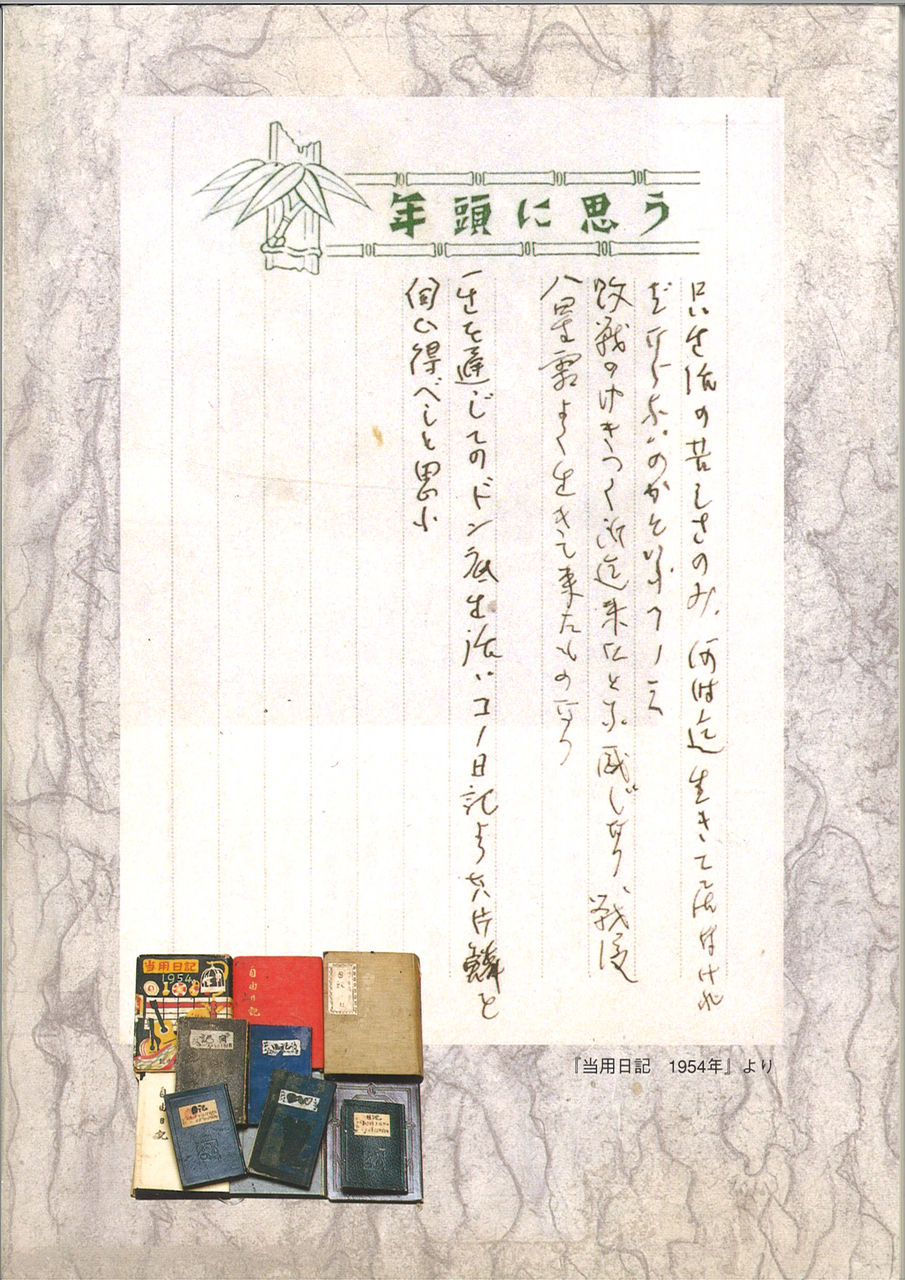 年頭に思う
只、生活の苦しさのみ、何時迄生きて居なけれ
ばならないのかといふ
敗戦のゆきつく所迄来たと云ふ感じなり、戦後
八星霜よく生きて来たものなり
一生を通じてのドン底生活、コノ日記より其片鱗を
伺ひ得べしと思ふ
『当用日記 1954年』より
当用日記
1954
自由日記
日記
自由日記
日記
日記